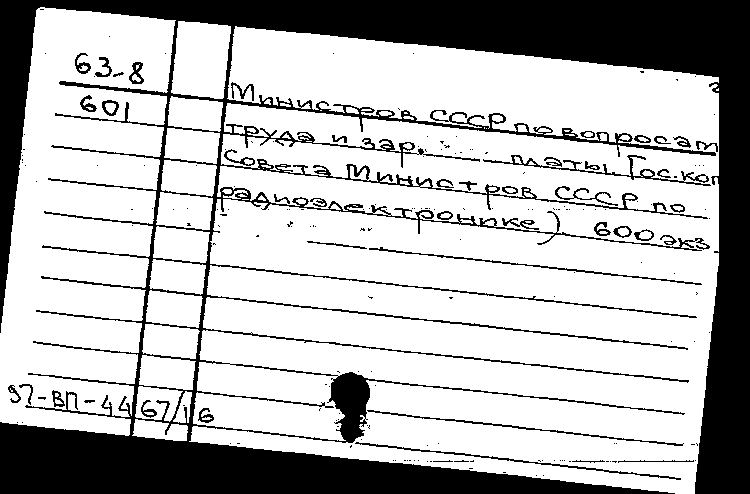 63-8
601
Министров СССР по вопросам
труда и зар. платы. Гос. ком
Совета Министров СССР по
радиоэлектронике) 600 экз.
97-ВП-4467/16